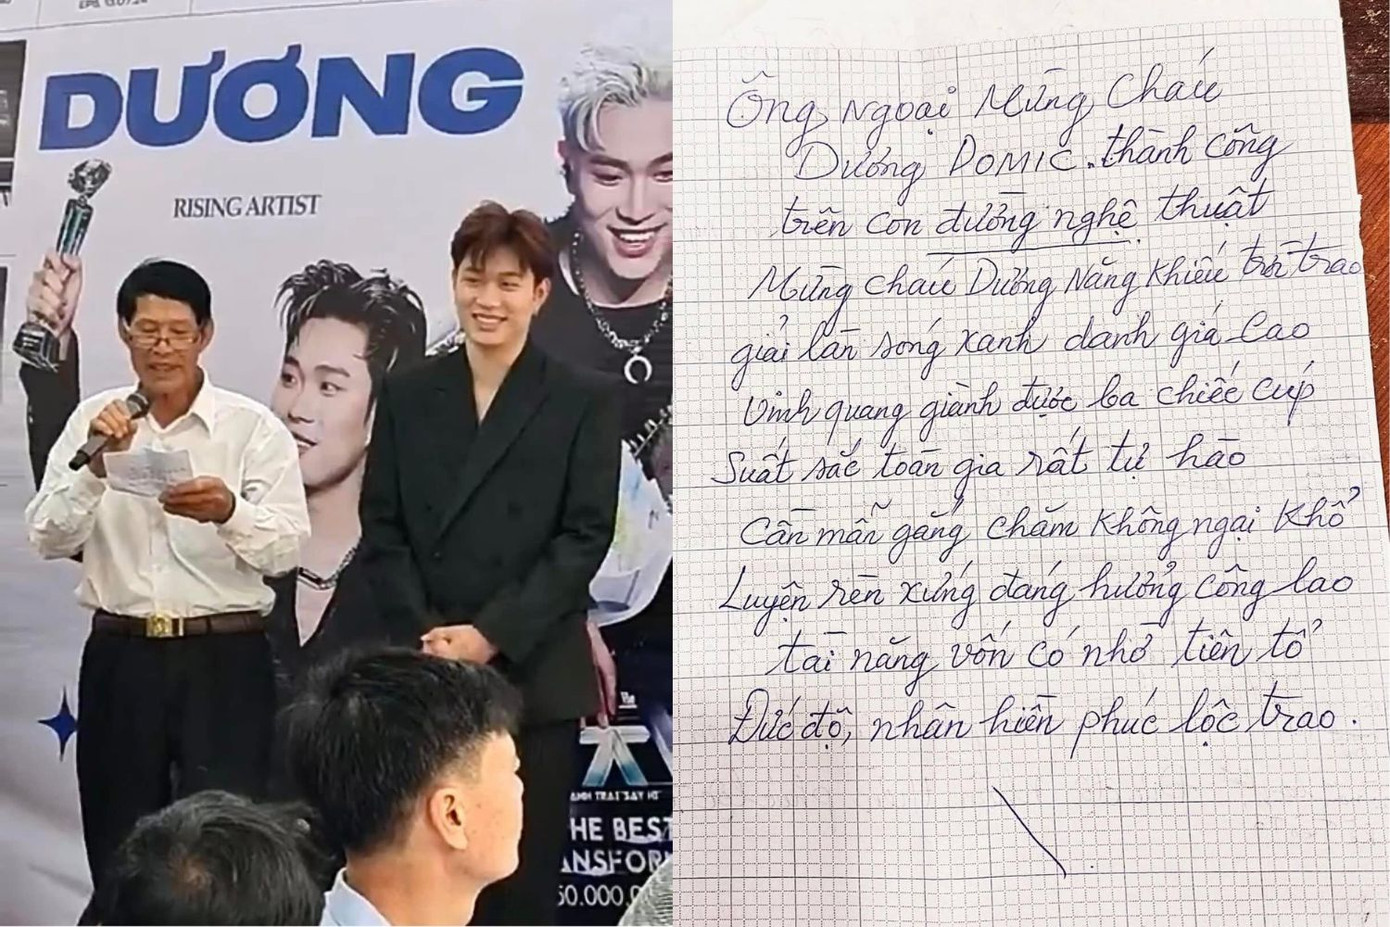 EPS. 13.07.24
DƯƠNG
RISING ARTIST
ANH TRAI "SAY HI"
HE BEST
ANSFOR
50.000.0
Ông Ngoại Mừng Cháu
Dương DOMIC. thành công
trên con đường nghệ thuật
Mừng cháu Dương Năng khiếu trời trao
giải làn sóng xanh danh giá cao
Vinh quang giành được ba chiếc cúp
Suất sắc toàn gia rất tự hào
Cần mẫn gắng chăm không ngại khổ
Luyện rèn xứng đáng hưởng công lao
tài năng vốn có nhờ tiên tổ
Đức độ, nhân hiền phúc lộc trao.